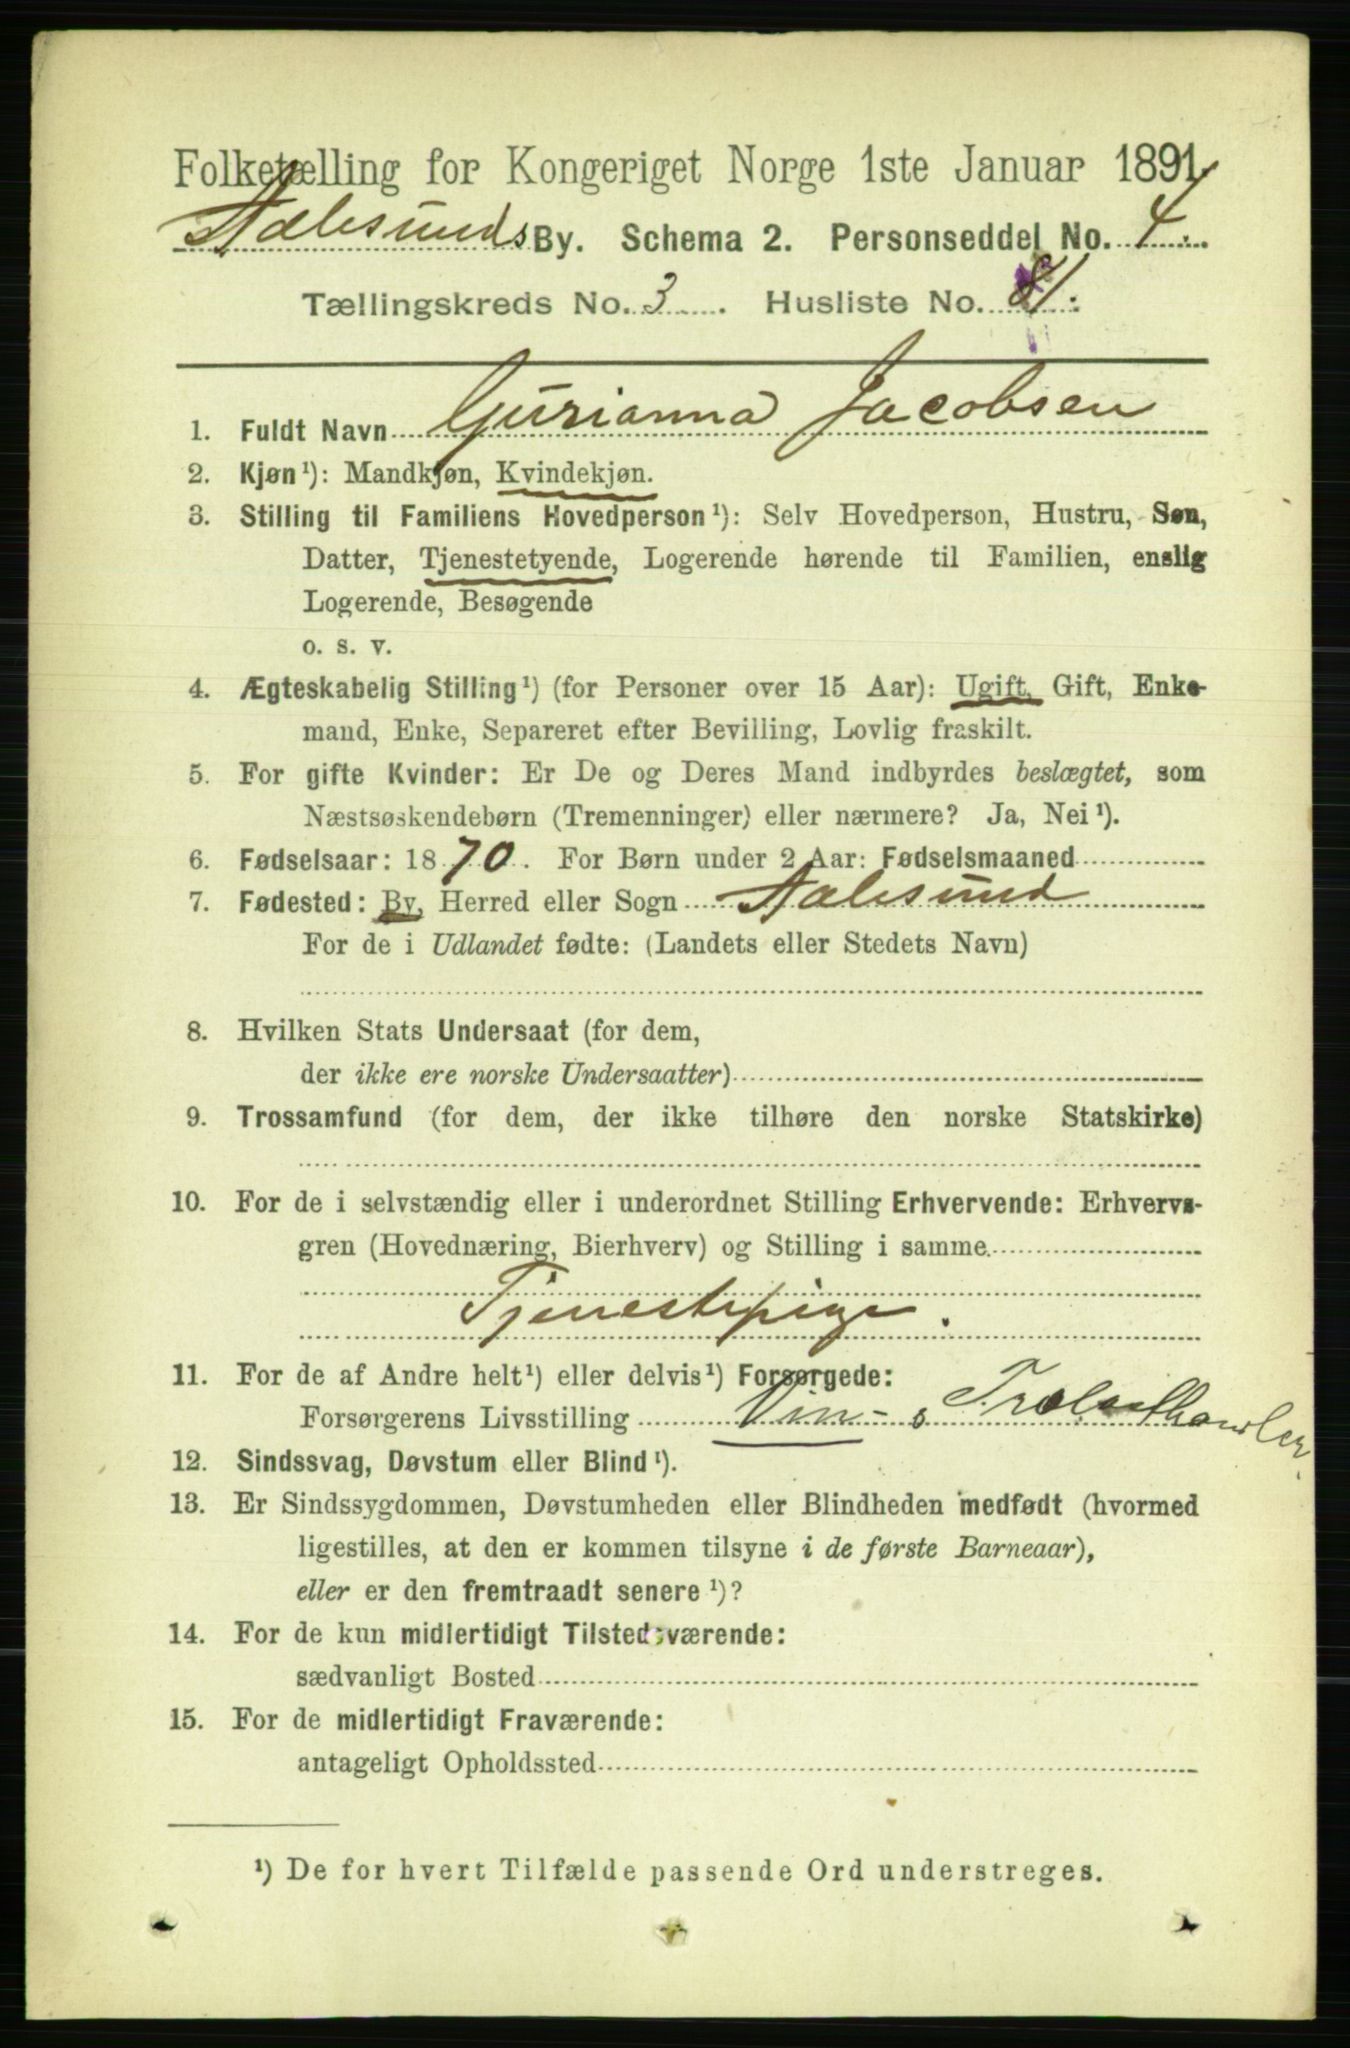 Folketælling for Kongeriget Norge 1ste Januar 1891.
Aalesunds By. Schema 2. Personseddel No. 4.
Tællingskreds No. 3. Husliste No. 81.
1. Fuldt Navn Gurianna Jacobsen
2. Kjøn¹): Mandkjøn, Kvindekjøn.
3. Stilling til Familiens Hovedperson¹): Selv Hovedperson, Hustru, Søn,
Datter, Tjenestetyende, Logerende hørende til Familien, enslig
Logerende, Besøgende
o. s. v.
4. Ægteskabelig Stilling¹) (for Personer over 15 Aar): Ugift, Gift, Enke-
mand, Enke, Separeret efter Bevilling, Lovlig fraskilt.
5. For gifte Kvinder: Er De og Deres Mand indbyrdes beslægtet, som
Næstsøskendebørn (Tremenninger) eller nærmere? Ja, Nei¹).
6. Fødselsaar: 1870. For Børn under 2 Aar: Fødselsmaaned
7. Fødested: By, Herred eller Sogn Aalesund
For de i Udlandet fødte: (Landets eller Stedets Navn)
8. Hvilken Stats Undersaat (for dem,
der ikke ere norske Undersaatter)
9. Trossamfund (for dem, der ikke tilhøre den norske Statskirke)
10. For de i selvstændig eller i underordnet Stilling Erhvervende: Erhvervs-
gren (Hovednæring, Bierhverv) og Stilling i samme
Tjenestepige.
11. For de af Andre helt¹) eller delvis¹) Forsørgede:
Forsørgerens Livsstilling Vin-
12. Sindssvag, Døvstum eller Blind¹).
13. Er Sindssygdommen, Døvstumheden eller Blindheden medfødt (hvormed
ligestilles, at den er kommen tilsyne i de første Barneaar),
eller er den fremtraadt senere¹)?
14. For de kun midlertidigt Tilstedeværende:
sædvanligt Bosted
15. For de midlertidigt Fraværende:
antageligt Opholdssted
¹) De for hvert Tilfælde passende Ord understreges.